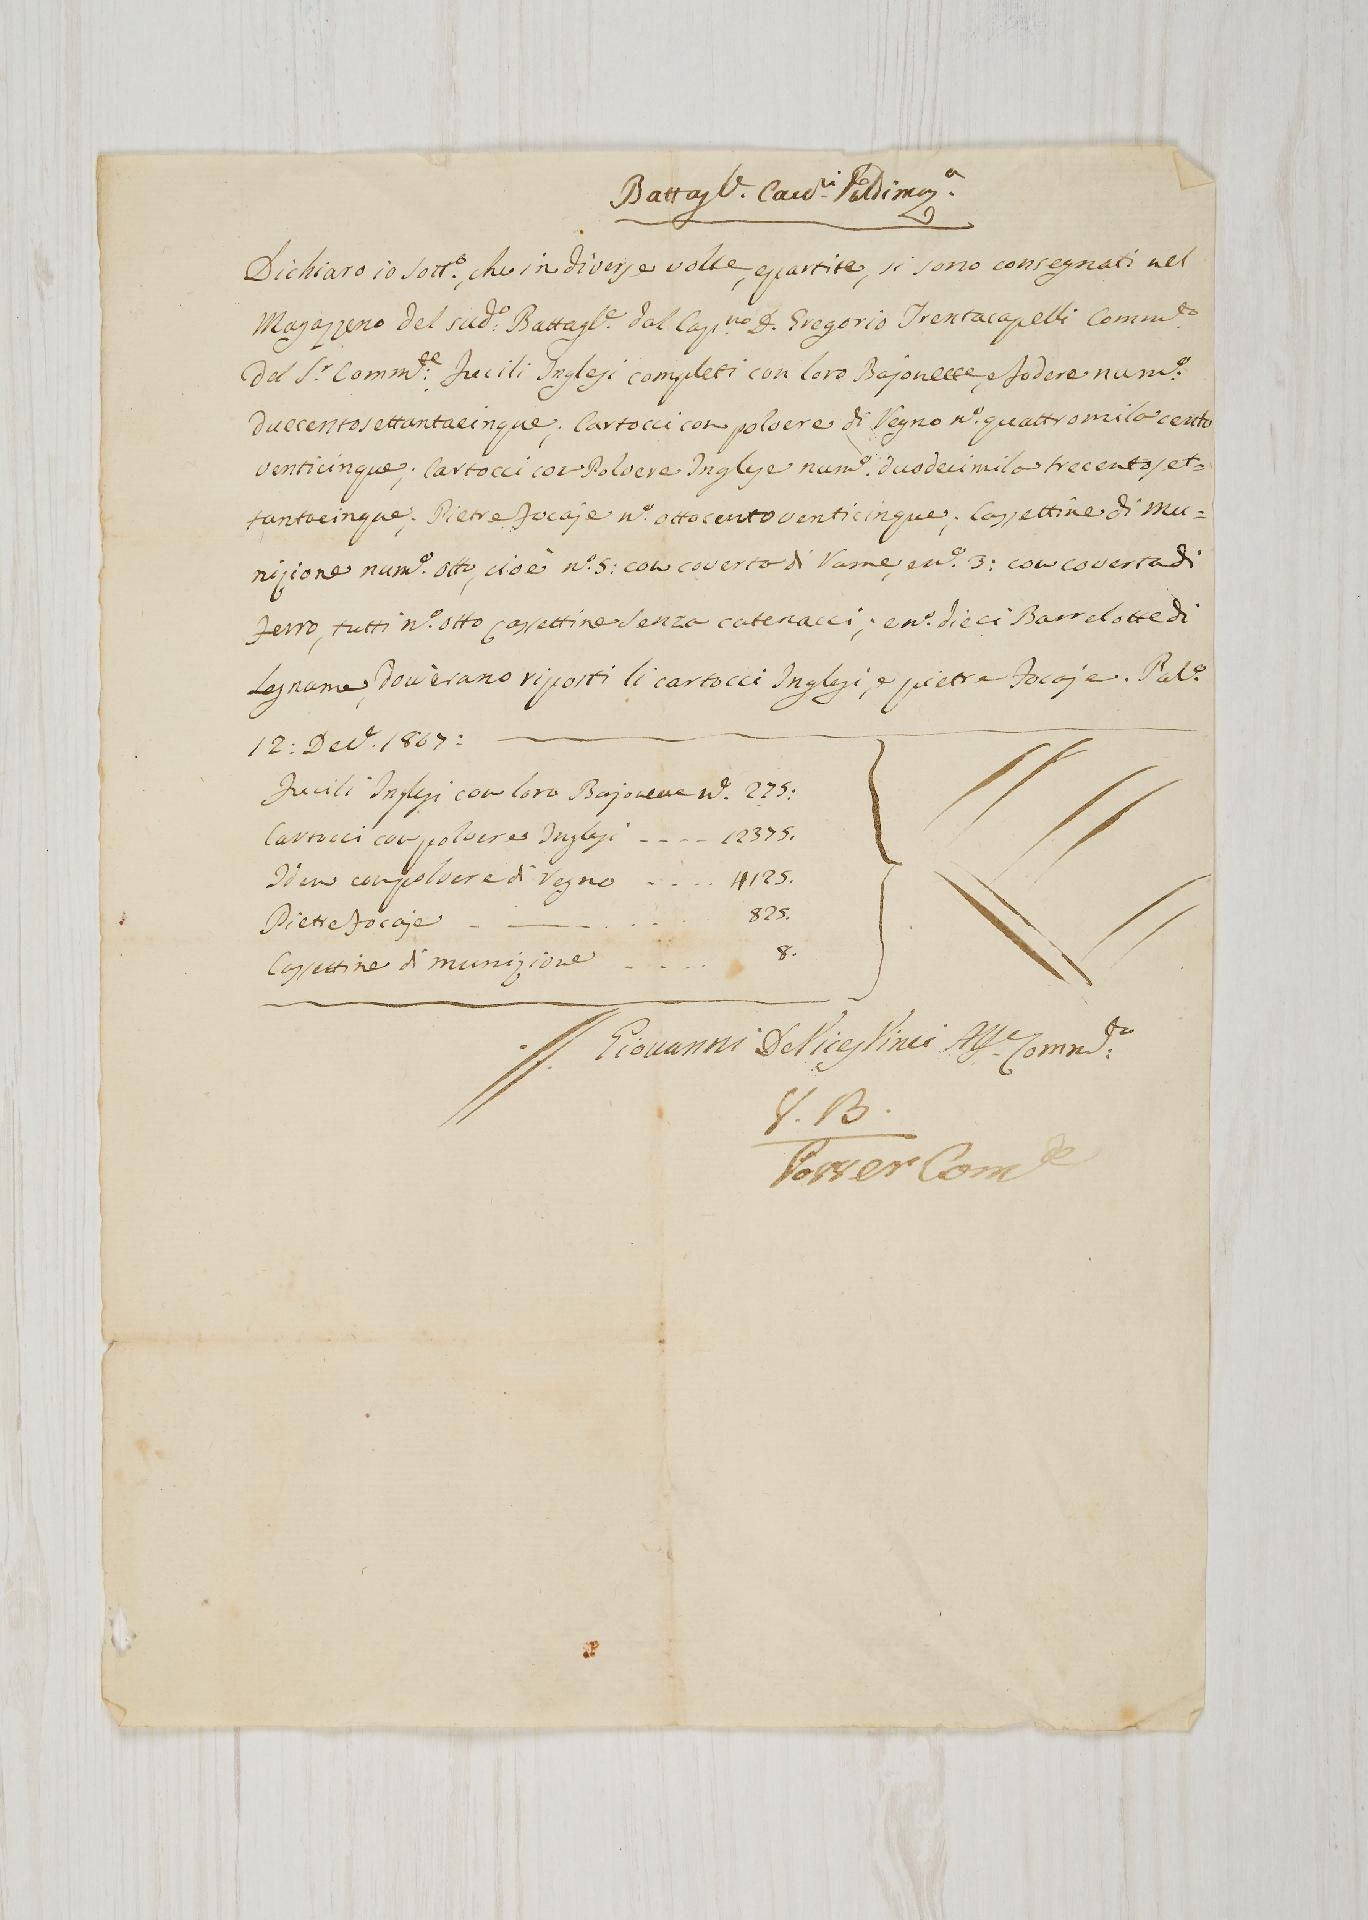 Battagl.e Cacc.ri Valdimaz.a
Dichiaro io sott.o, che in diverse volte, e partite, si sono consegnati nel
Magazzeno del sud.o Battagl.e dal Cap.no D. Gregorio Trentacapelli Comm.to
dal S.r Comm.te: Fucili Inglesi completi con loro Bajonette, e fodere num.o
duecentosettantacinque; Cartocci con polvere di Regno n.o quattromila cento
venticinque; Cartocci con Polvere Inglese num.o duodecimila trecentoset=
tantacinque; Pietre focaje n.o ottocentoventicinque; Cassettine di mu=
nizione num.o otto, cioè n.o 5: con coverta di Rame, e n.o 3: con coverta di
ferro, tutti n.o otto cassettine senza catenacci; e n.o dieci Barrelotte di
legname, dov'erano riposti li cartocci Inglesi, e pietre focaje. Pal.o
12: Dec.e 1807:
Fucili Inglesi con loro Bajonette n.o 275:
Cartocci con polvere Inglesi ---- 12375.
Idem con polvere di Regno .... 4125.
Pietre focaje - —— . . . 825.
Cassettine di munizione .... 8.
Giovanni De Comm.to
V. B.
Com.te